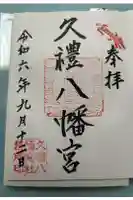 奉拝
久禮八幡宮
令和六年九月十二日